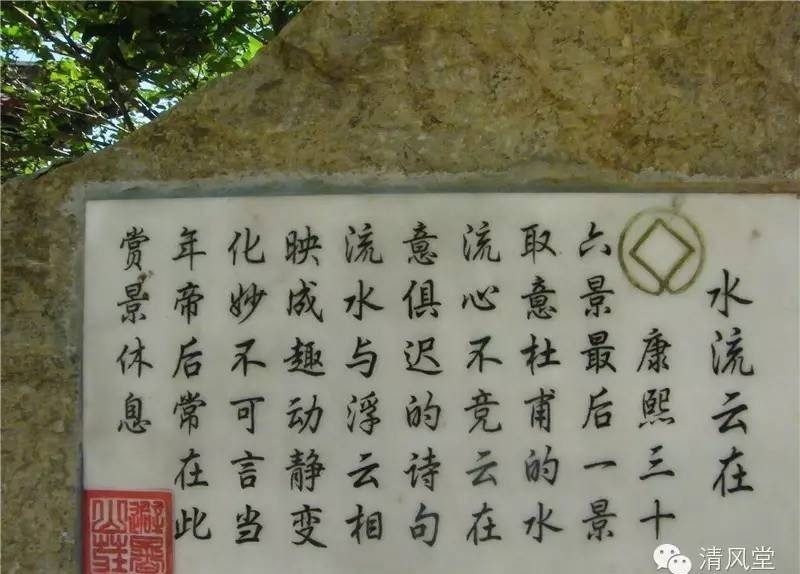 水流云在
康熙三十
六景最后一景
取意杜甫的水
流心不竞云在
意俱迟的诗句
流水与浮云相
映成趣动静变
化妙不可言当
年帝后常在此
赏景休息
避暑山庄
清风堂